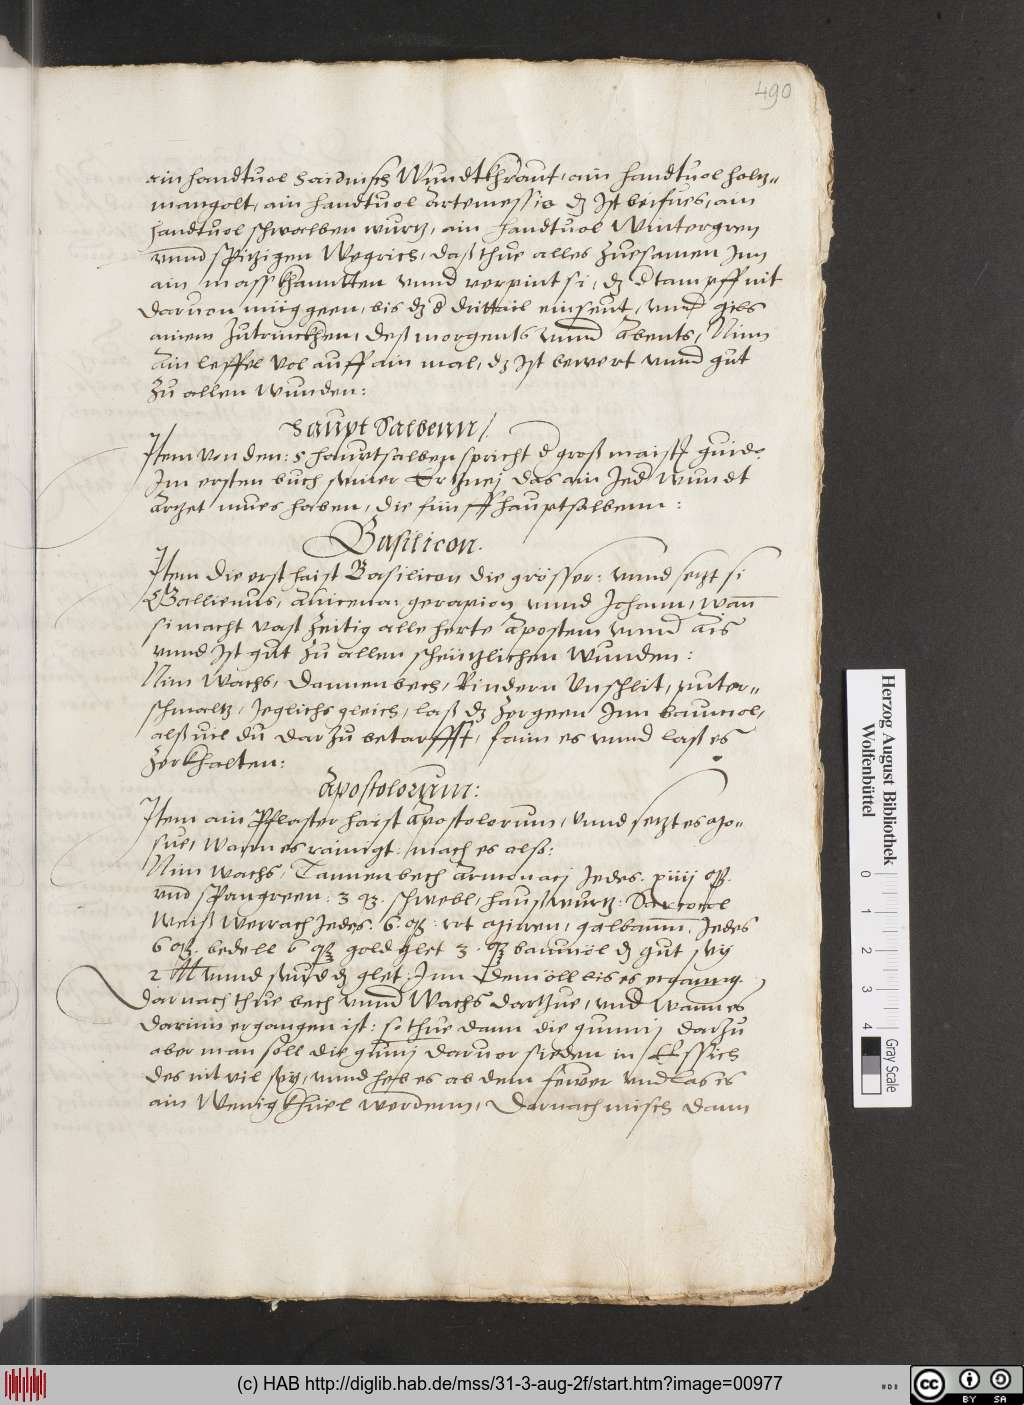 490
ain handtuol haidnisch Wundtkhraut, ain handtuol holtz=
mangolt, ain handtuol Artemessia dz Ist beifues, ain
handtuol schwalben wurtz, ain handtuol Wintergren
vnnd spitzigen Wegrich, daß thue alles Zuesamen Jnn
ain mass khanntten vnnd verpint si, dz d tampff nit
daruon müg geen, bis dz d drittail einseut, vnd gibs
ainem Zutrinckhen, deß morgents vnnd Abents, Nim
Ain leffel vol auff ain mal, dz Ist bewert vnnd gut
Zu allen Wunden:
Haupt Salbenn /.
Item von den: 5 hauptsalben spricht d groß maist guido
Jm ersten buch seiner Ertznej das ain Jed Wundt
Artzet mues haben, die fünff hauptsalbenn:
Basilicon.
Item die erst haist Basilicon die grösser: vnnd setzt si
Gallienus, Auicena: gerapion vnnd Johann, Wan
si macht vast Zeitig alle herte Apostem vnnd Ais
vnnd Ist gut Zu allen scheützlichen Wunden:
Nim Wachs, Dannenbech, Rindern Vnschlit, puter=
schmaltz, Jeglichs gleich, laß dz Zergeen Jnn baumol,
alß uil du darZu betarffst, faim es vnnd laß es
Zerkhalten:
Apostolorum:
Item ain Pflaster haist Apostolorum, vnnd setzt es apo=
sue, Wann es rainigt: mach es alß:
Nim Wachs, Tannenbech Armoniacj Jedes. xiiij
vnd Spangreen: 3 schwebl, haußwurtz: Sarcocol
Weiß Werrach Jedes: 6. rot galbanum. Jedes
6 bedell 6 gold glet 3. baumöl dz gut sey
2 vnnd seud dz glet: Jnn dem öll bis es erganng.
Darnach thue bech vnnd Wachs dartzue, vnd Wann es
darinn ergangen ist: so thue dann die gummj darzu
aber man soll die gumj daruor sieden in Essich
des nit vil sey, vnnd heb es ab dem fewer vnd las es
ain Wenig khüel werdenn, Darnach misch dann
Herzog August Bibliothek
Wolfenbüttel
0 1 2 3 4
Gray Scale
(c) HAB http://diglib.hab.de/mss/31-3-aug-2f/start.htm?image=00977
cc BY SA